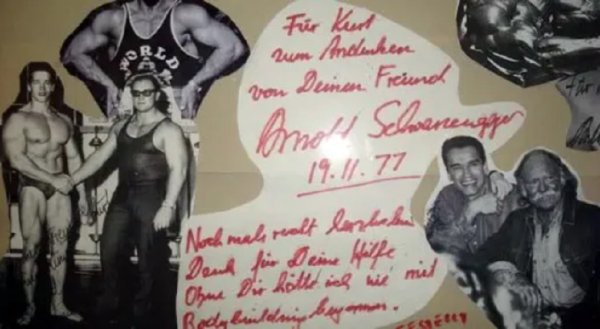 WORLD
Für Kurt
zum Andenken
von Deinen Freund
Arnold Schwarzenegger
19.11.77
Noch mals recht herzlichen
Dank für Deine Hilfe
Ohne Dir hätte ich nie mit
Bodybuilding begonnen.